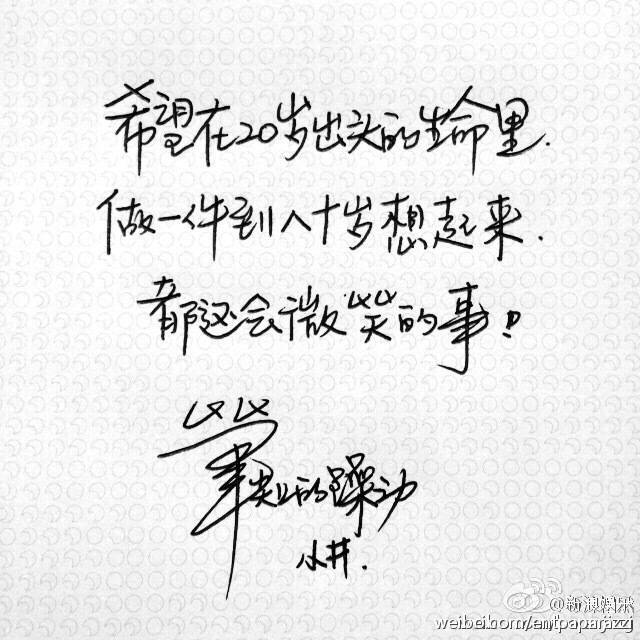 希望在20岁出头的生命里.
做一件到八十岁想起来.
都还会微笑的事!
笔尖上的躁动
小井.
@新浪娱乐
weibo.com/entpaparazzi